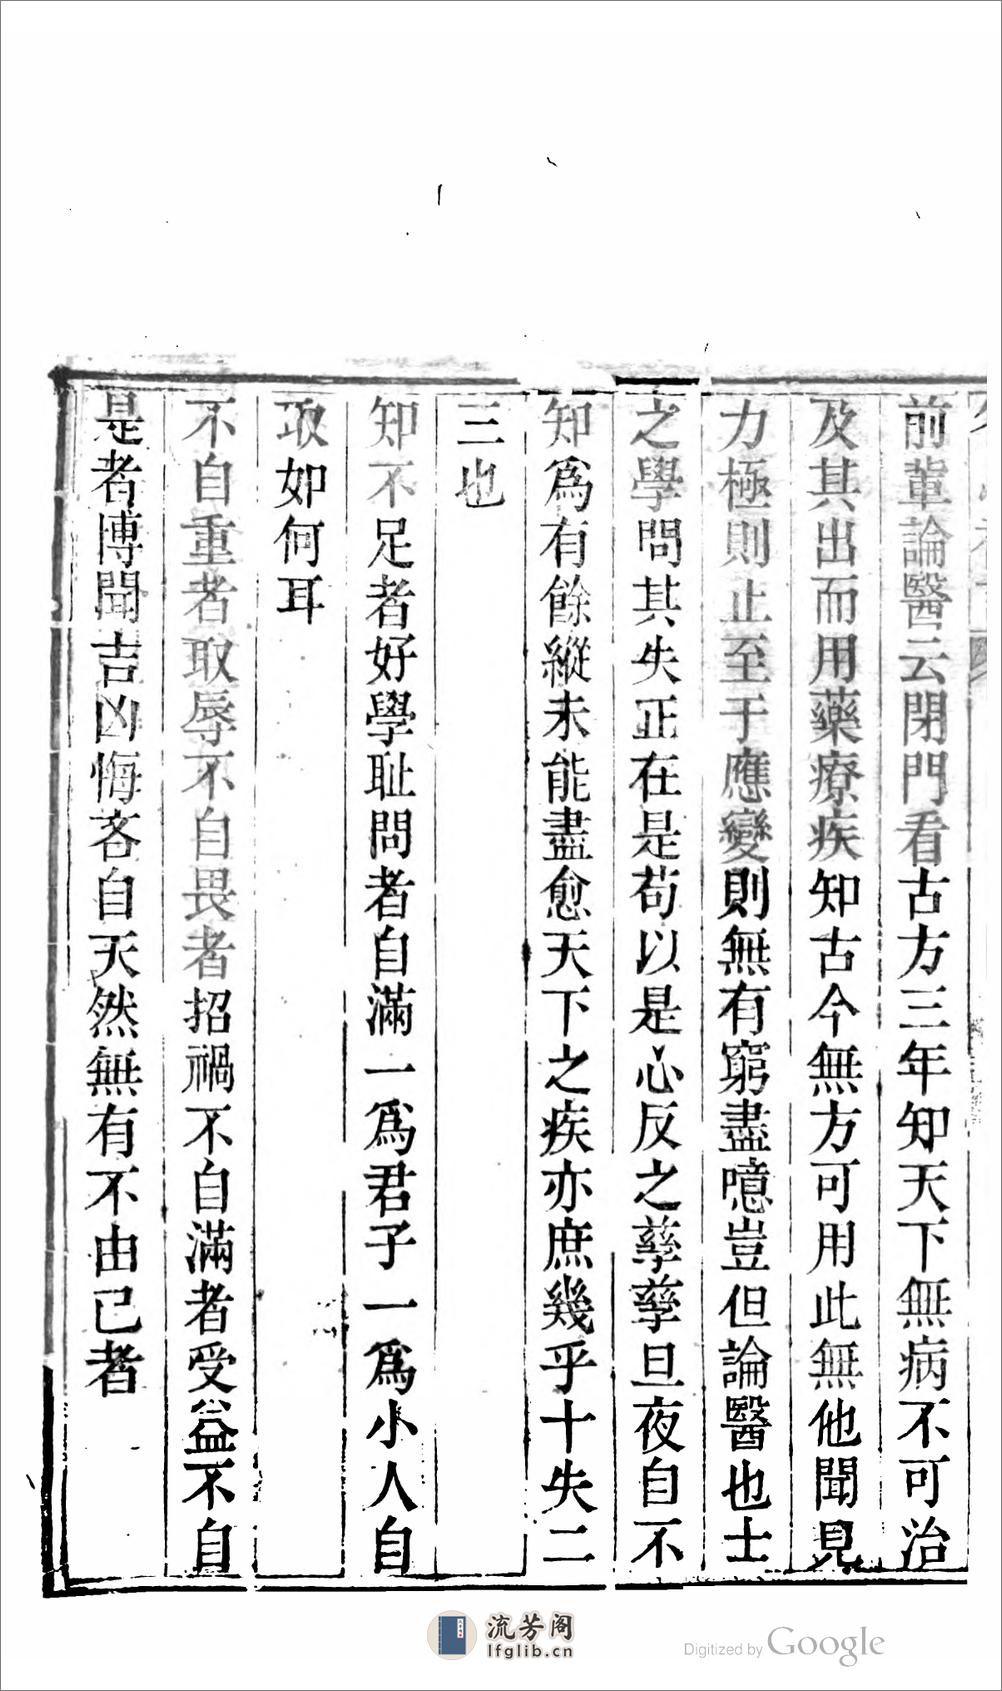 前輩論醫云閉門看古方三年知天下無病不可治
及其出而用藥療疾知古今無方可用此無他聞見
力極則止至于應變則無有窮盡噫豈但論醫也士
之學問其失正在是苟以是心反之孳孳旦夜自不
知爲有餘縱未能盡愈天下之疾亦庶幾乎十失二
三也
知不足者好學耻問者自滿一爲君子一爲小人自
取如何耳
不自重者取辱不自畏者招禍不自滿者受益不自
是者博聞吉凶悔吝自天然無有不由已者
流芳阁
lfglib.cn
Digitized by Google